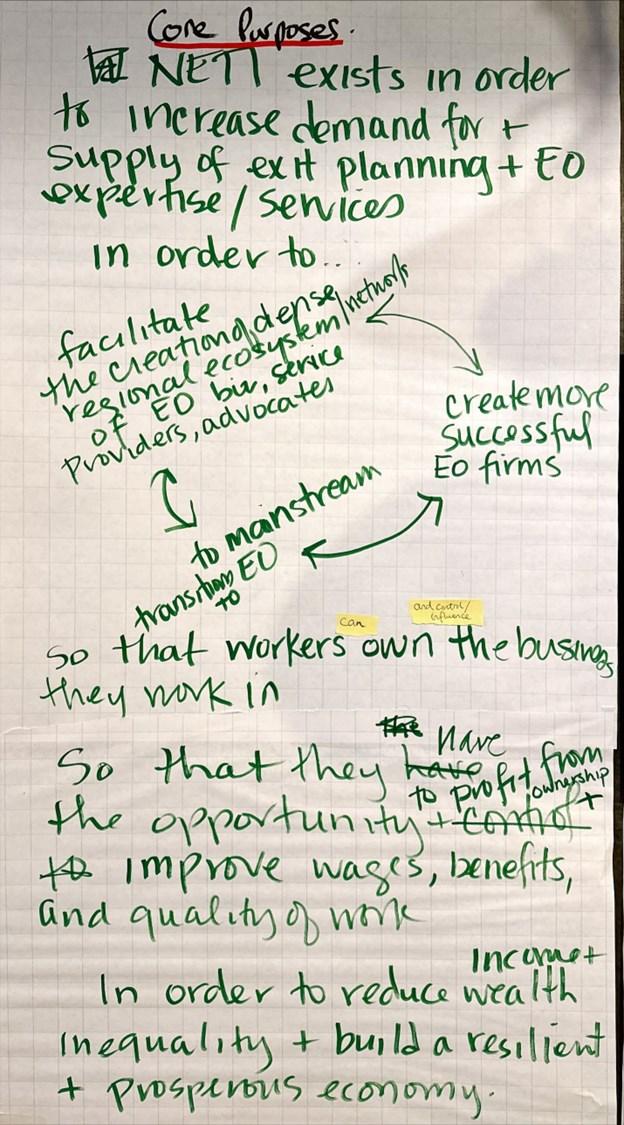 Core Purposes.
NETI exists in order
to increase demand for +
supply of exit planning + EO
expertise / services
in order to...
facilitate
the creation of dense
regional ecosystem/network
of EO biz, service
providers, advocates
create more
successful
EO firms
to mainstream
transition EO
to
can
and control/
influence
So that workers own the business
they work in
the have
So that they have to profit from
ownership
the opportunity + control +
to improve wages, benefits,
and quality of work
income +
In order to reduce wealth
inequality + build a resilient
+ prosperous economy.